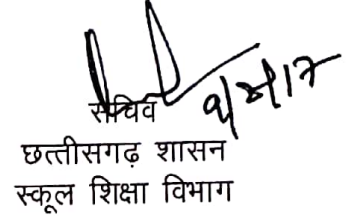 सचिव
छत्तीसगढ़ शासन
स्कूल शिक्षा विभाग